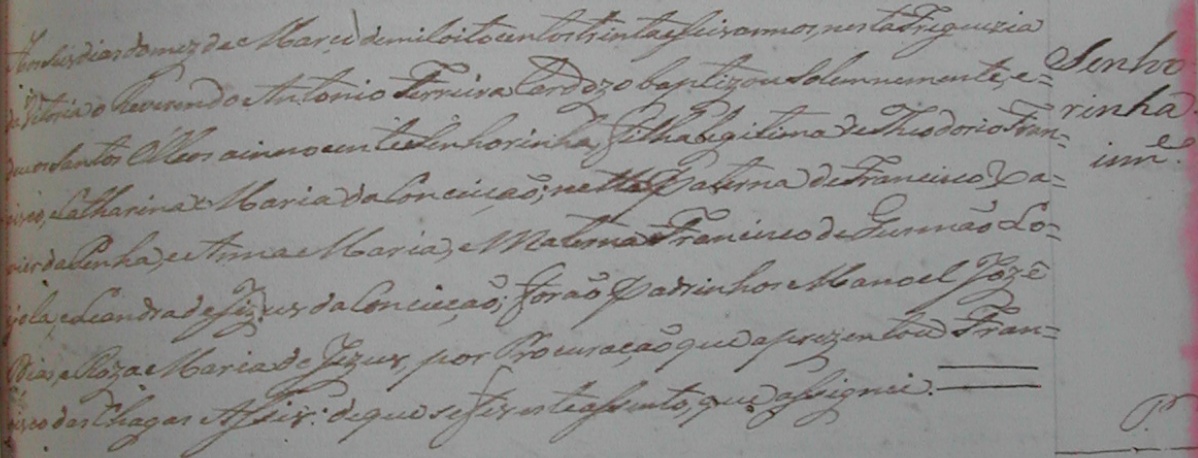 Aos seis dias do mez de Março de mil oito centos trinta e seis annos, nesta Freguezia
da Vitoria o Reverendo Antonio Ferreira Cardozo baptizou solemnemente, e=
deu os Santos Olleos a innocente Senhorinha, Filha legitima de Theodorio Fran=
cisco, e Catharina Maria da Conceição; netta Paterna de Francisco Xa=
vier da Penha, e Anna Maria, e Materna Francisco de Gusmão Lo=
yola, e Leandra de Jezus da Conceição; forão Padrinhos Manoel Jozé
Dias, e Roza Maria de Jezus, por Procuração que aprezentou Fran=
cisco das Chagas Assis: de que se fes este assento, que assignei.
Senho
rinha
inn.e
P.